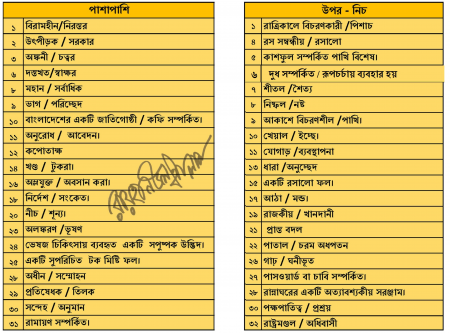 পাশাপাশি
১ বিরামহীন/নিরন্তর
২ উৎপীড়ক / সরকার
৩ অঙ্গনী / চত্বর
৬ দস্তখত/স্বাক্ষর
৮ মহান / সর্বাধিক
৯ ভাগ / পরিচ্ছেদ
১০ বাংলাদেশের একটি জাতিগোষ্ঠী / কফি সম্পর্কিত।
১১ অনুরোধ / আবেদন।
১২ কপোতাক্ষ
১৪ খণ্ড / টুকরা।
১৬ অম্লযুক্ত / অবসান করা।
১৮ নির্দেশ / সংকেত।
২০ নীচ / শূন্য।
২৩ অলঙ্করণ / ভূষণ
২৪ ভেষজ চিকিৎসায় ব্যবহৃত একটি সপুষ্পক উদ্ভিদ।
২৫ একটি সুপরিচিত টক মিষ্টি ফল।
২৮ অধীন / সম্মোহন
২৯ প্রতিষেধক / তিলক
৩০ সন্দেহ / অনুমান
৩১ রামায়ণ সম্পর্কিত।
উপর - নিচ
১ রাত্রিকালে বিচরণকারী /পিশাচ
৪ রস সম্বন্ধীয় / রসালো
৫ কাশফুল সম্পর্কিত পাখি বিশেষ।
৬ দুধ সম্পর্কিত / রূপচর্চায় ব্যবহার হয়
৭ শীতল/শৈত্য
৮ নিষ্ফল /নষ্ট
৯ আকাশে বিচরণশীল /পাখি।
১০ খেয়াল / ইচ্ছে।
১১ যোগাড় /ব্যবস্থাপনা
১৩ ধারা /অনুচ্ছেদ
১৫ একটি রসালো ফল।
১৭ আঠা / মন্ড।
১৯ রাজকীয় / খানদানী
২১ প্রান্ত বদল
২২ পাতাল / চরম অধপতন
২৬ গাঢ় / ঘনীভূত
২৭ পাসওয়ার্ড বা চাবি সম্পর্কিত।
২৮ রান্নাঘরের একটি অত্যাবশ্যকীয় সরঞ্জাম।
৩০ পক্ষপাতিত্ব / প্রশ্রয়
৩২ রাষ্ট্রমণ্ডল / অধিবাসী